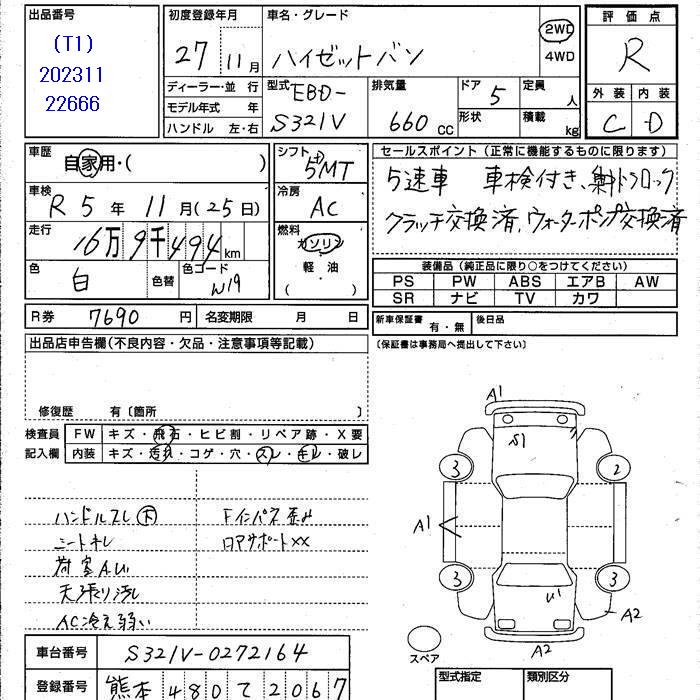 出品番号
(T1)
202311
22666
初度登録年月
27 11月
車名・グレード
ハイゼットバン
2WD
4WD
評価点
R
外装 内装
C D
ディーラー・並 行
モデル年式 年
ハンドル 左・右
型式
EBD-
S321V
排気量
660 CC
ドア 5
形状
定員 人
積載 kg
車歴
自家用・( )
車検
R 5 年 11 月(25日)
走行
16万9千494km
色
白
色替
色コード
W19
シフト
5MT
冷房
AC
燃料
ガソリン
軽油
( )
セールスポイント(正常に機能するものに限ります)
5速車 車検付き、
クラッチ交換済、ウォーターポンプ交換済
装備品(純正品に限り○をつけてください)
PS PW ABS エアB AW
SR ナビ TV カワ
R券 7690 円 名変期限 月 日
新車保証書 有・無 後日品
(保証書は事務局へ提出して下さい)
出品店申告欄(不良内容・欠品・注意事項等記載)
修復歴 有〔箇所 〕
検査員 FW キズ・飛石・ヒビ割・リペア跡・X要
記入欄 内装 キズ・汚れ・コゲ・穴・スレ・キレ・破レ
ハンドルスレ 大
シートキレ
荷室AU
天張り汚し
AC冷え弱い
Fインパネ歪み
ロアサポートXX
A1
S1
3 2
A1
3 3
U1
A2
A2
スペア
車台番号 S321V-0272164
登録番号 熊本 480 て 2067
型式指定 類別区分